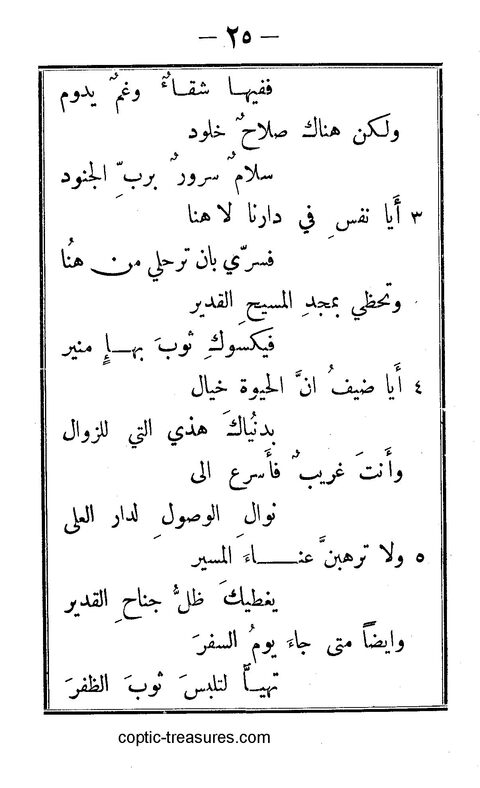 – ٢٥ –
ففيهـا شقـاءٌ وغمٌ يدوم
ولكن هناك صلاحٌ خلود
سلامٌ سرورٌ بربِّ الجنود
٣ أَيا نفسِ في دارنا لا هنا
فسرّي بان ترحلي من هُنا
وتحظي بمجدِ المسيحِ القدير
فيكسوكِ ثوبَ بهـاءٍ منير
٤ أَيا ضيفُ انَّ الحيوة خيال
بدنُياكَ هذي التي للزوال
وأَنتَ غريبٌ فأَسرع الى
نوالِ الوصولِ لدار العلى
٥ ولا ترهبنَّ عنـــاءَ المسير
يغطيكَ ظلُّ جناحِ القدير
وايضاً متى جاءَ يومُ السفرَ
تهيـأَّ لتلبسَ ثوبَ الظفرَ
coptic-treasures.com